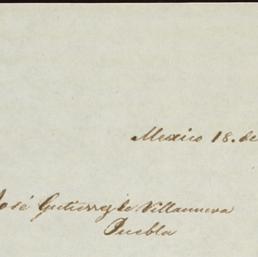 Mexico 18. de
José Gutierrez de Villanueva
Puebla